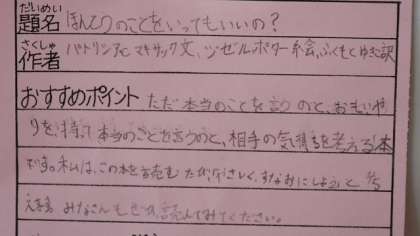 だいめい
題名 ほんとうのことをいってもいいの？
さくしゃ
作者 パトリシアC マキサック文、ジゼルポター絵、ふくもとゆきこ訳
おすすめポイント ただ本当のことを言うのと、おもいや
りを、持って本当のことを言うのと、相手の気持ちを考える本
です。私は、この本を読むたび、やさしく、すなおにしようと
みなさんもぜひ、読んでみてください。